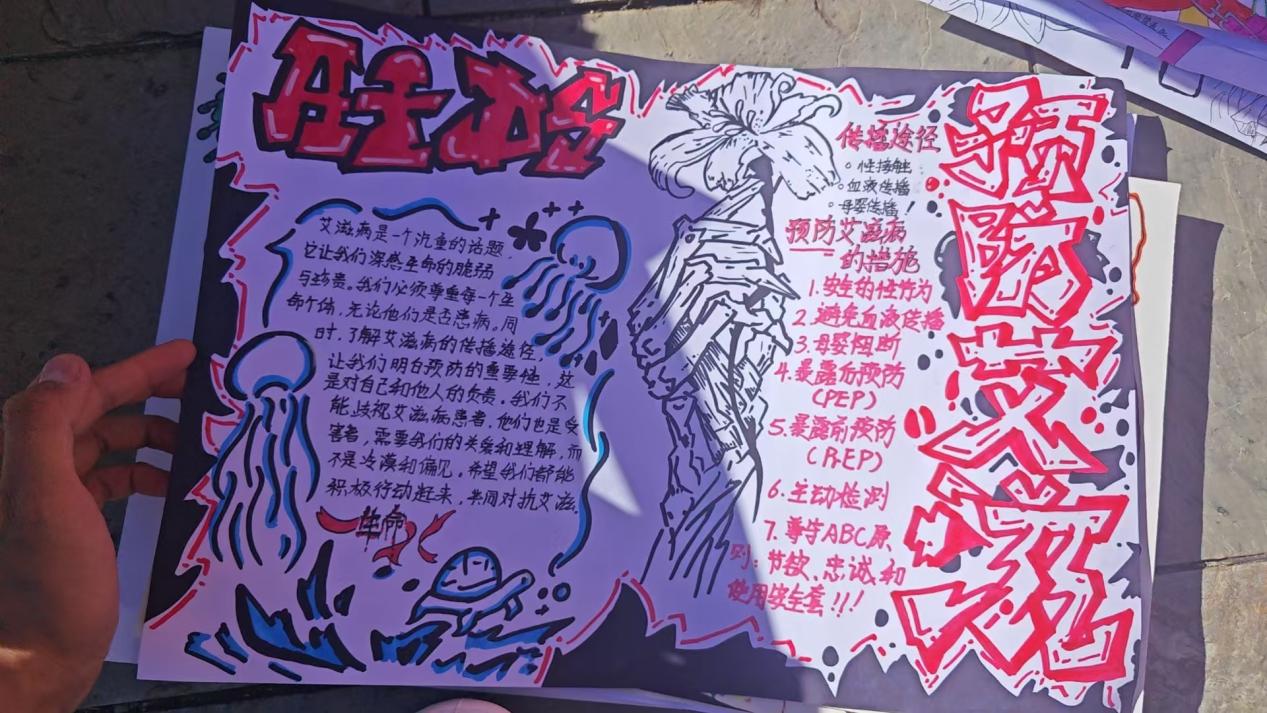 AIDS
艾滋病是一个沉重的话题，
它让我们深感生命的脆弱
与珍贵。我们必须尊重每一个生
命个体，无论他们是否患病。同
时，了解艾滋病的传播途径，
让我们明白预防的重要性，这
是对自己和他人的负责。我们不
能歧视艾滋病患者，他们也是受
害者，需要我们的关爱和理解，而
不是冷漠和偏见。希望我们都能
积极行动起来，共同对抗艾滋。
生命
传播途径
。性接触
。血液传播
。母婴传播！
预防艾滋病
的措施
1.安全的性行为
2.避免血液传播
3.母婴阻断
4.暴露后预防
(PEP)
5.暴露前预防
(PrEP)
6.主动检测
7.尊守ABC原
则：节欲、忠诚和
使用安全套！！！
预防艾滋